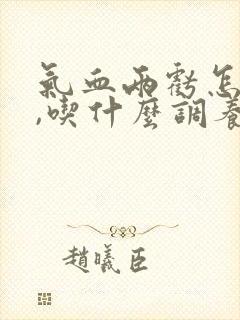 氣血兩虧怎
,喫什麼調養
趙曦臣